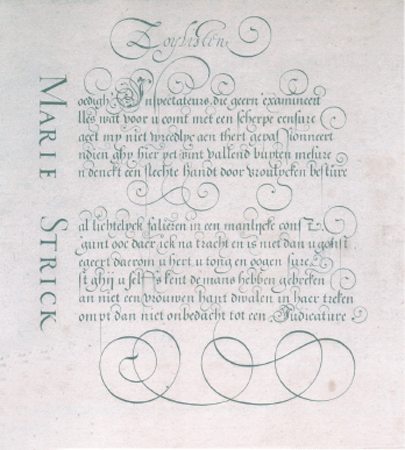 Zoyilslen
MARIE STRICK
oedigh' Inspectateurs die geern examineert
lles wat voor u comt met een scherpe censure
niet wreedlyc aen thert gepassionneert
ndien ghy hier yet vint vallend buyten mesure
n denckt een slechte handt door vroulycken besture
al lichtelyck falieren in een manlycke const
gunt ooc daer ick na tracht en is niet dan u gonst
egeert daerom u hert, u tong en oogen sure
st ghij u selfs kent de mans hebben gebreken
an niet een vrouwen hant dwalen in haer treken
omt dan niet onbedacht tot een Judicature